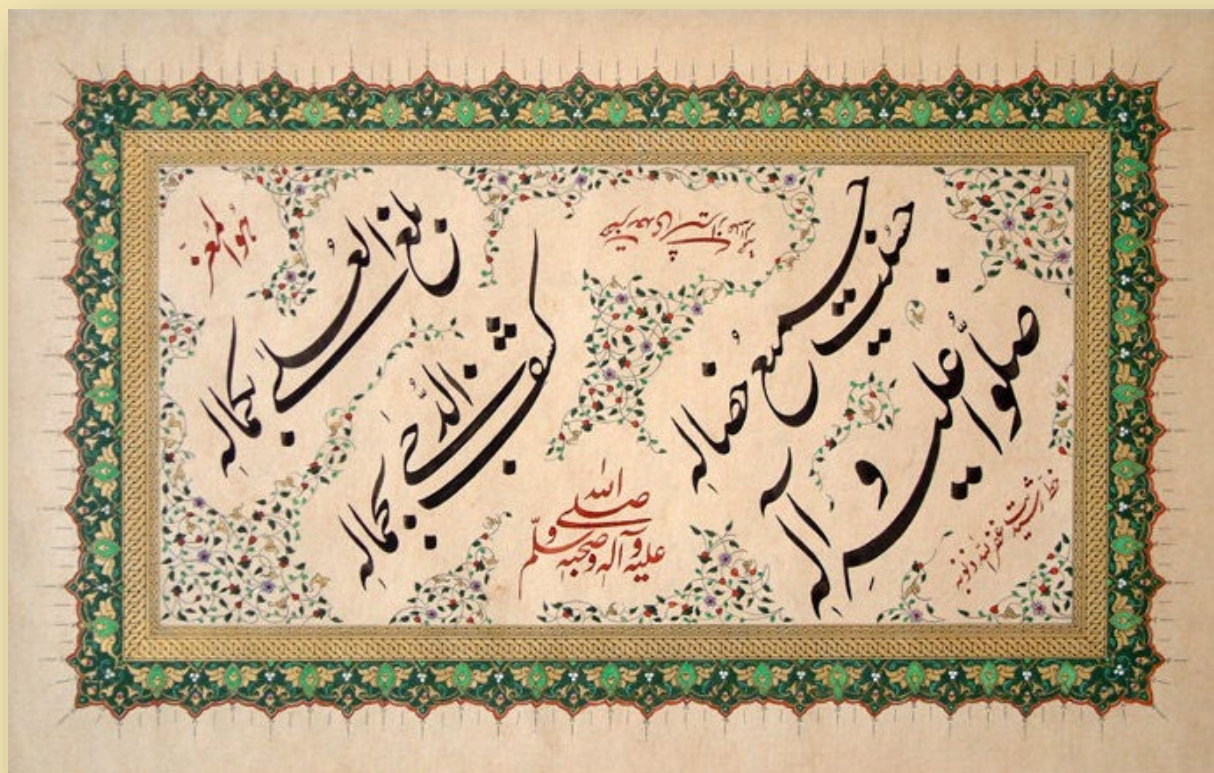 هو المعز
بلغ العلى بكماله
كشف الدجى بجماله
حسنت جميع خصاله
صلوا عليه وآله
صلى الله عليه وآله وصحبه وسلم